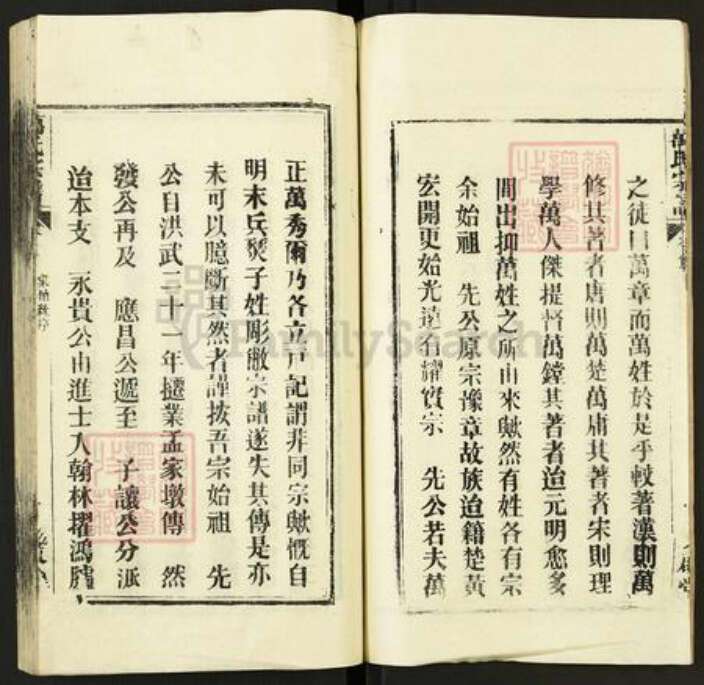 之徒曰萬章而萬姓於是乎較著漢則萬
修其著者唐則萬楚萬庸其著者宋則理
學萬人傑提督萬鏜其著者迨元明愈多
間出抑萬姓之所由來歟然有姓各有宗
余始祖 先公原宗豫章故族迨籍楚黃
宏開更始光遠有耀實宗 先公若夫萬
正萬秀爾乃各立戶記謂非同宗歟慨自
明末兵燹子姓彫敝宗譜遂失其傳是亦
未可以臆斷其然者謹按吾宗始祖 先
公自洪武二十一年攄業孟家墩傳 然
發公再及 應昌公遞至 子讓公分派
迨本支 永貴公由進士入翰林擢鴻臚
FamilySearch